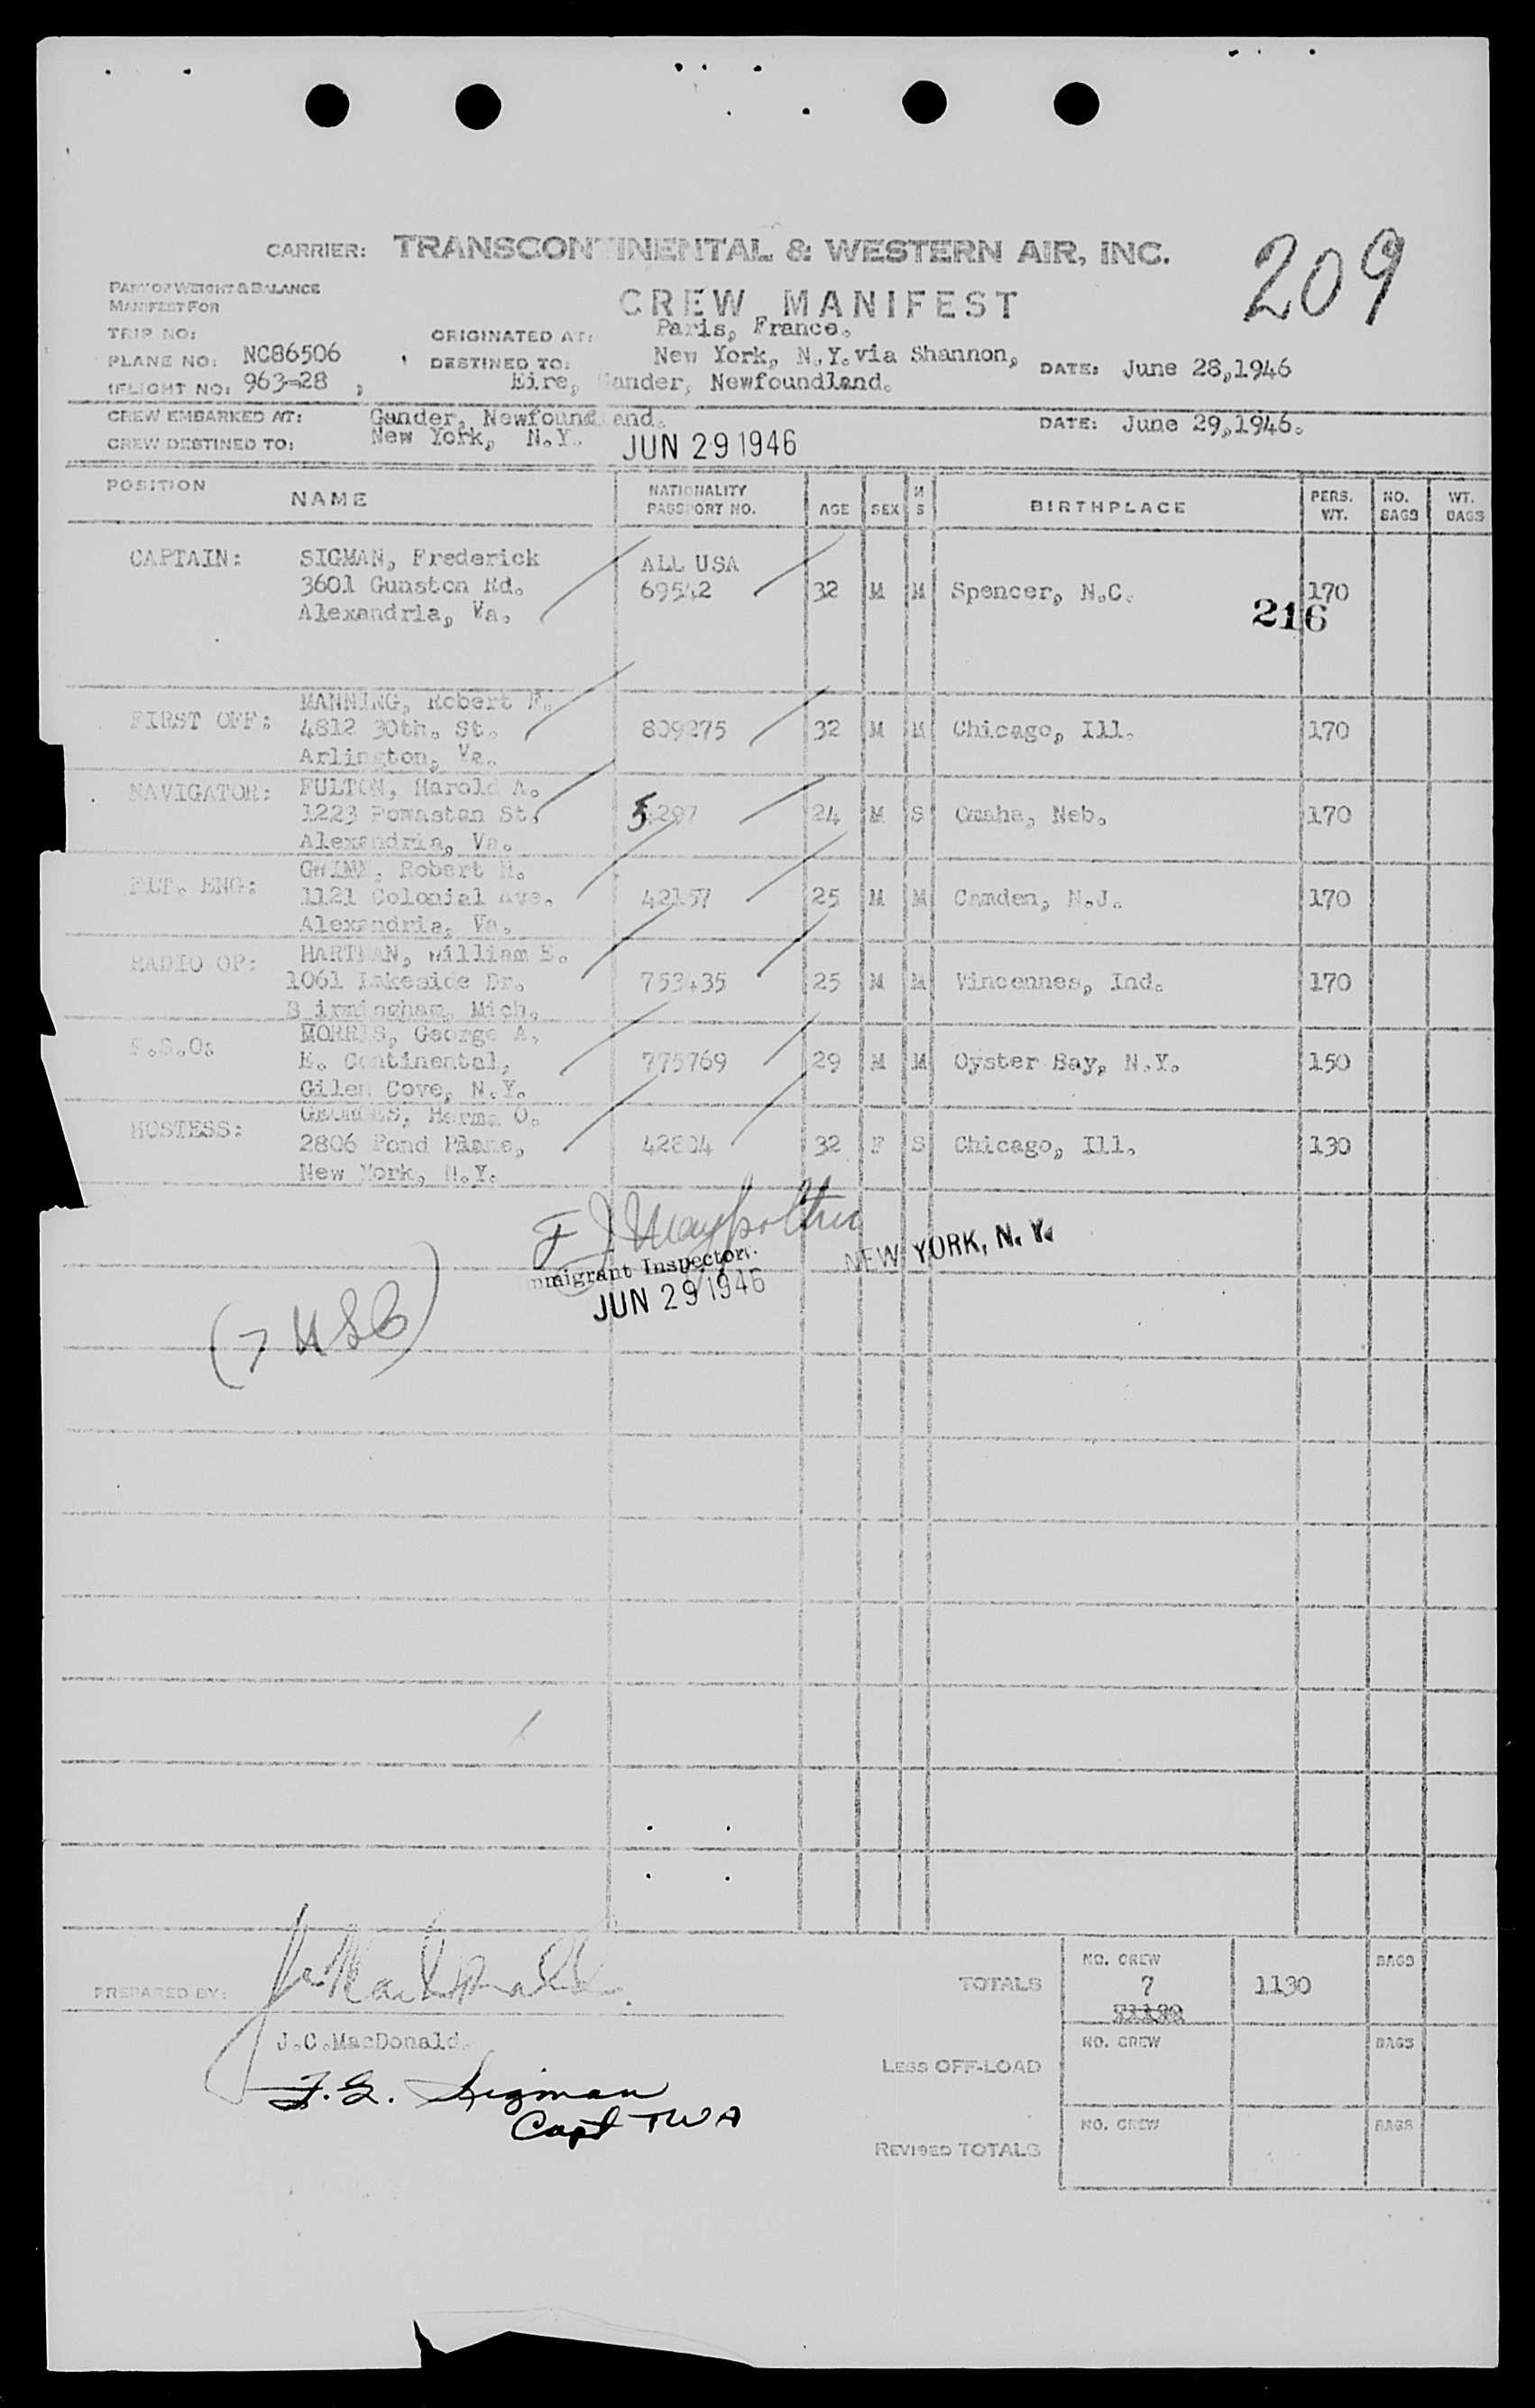 209
CARRIER: TRANSCONTINENTAL & WESTERN AIR, INC.
PART OF WEIGHT & BALANCE
MANIFEST FOR
CREW MANIFEST
TRIP NO:
ORIGINATED AT: Paris, France.
PLANE NO: NC86506
DESTINED TO: New York, N.Y.via Shannon,
DATE: June 28,1946
(FLIGHT NO: 963-28 ,
Eire, Gander, Newfoundland.
CREW EMBARKED AT: Gander, Newfoundland.
DATE: June 29,1946.
CREW DESTINED TO: New York, N.Y.
JUN 29 1946
POSITION NAME NATIONALITY PASSPORT NO. AGE SEX M S BIRTHPLACE PERS. WT. NO. BAGS WT. BAGS
CAPTAIN: SIGMAN, Frederick ALL USA
3601 Gunston Rd. 69542 32 M M Spencer, N.C. 170
Alexandria, Va.
216
MANNING, Robert F.
FIRST OFF: 4812 30th. St. 809275 32 M M Chicago, Ill. 170
Arlington, Va.
NAVIGATOR: FULTON, Harold A.
1223 Powastan St. 5297 24 M S Omaha, Neb. 170
Alexandria, Va.
GWINN, Robert H.
FLT. ENG: 1121 Colonial Ave. 42157 25 M M Camden, N.J. 170
Alexandria, Va.
RADIO OP: HARTMAN, William E.
1061 Lakeside Dr. 753435 25 M M Vincennes, Ind. 170
B irmingham, Mich.
F.S.O: MORRIS, George A.
E. Continental, 775769 29 M M Oyster Bay, N.Y. 150
Gilen Cove, N.Y.
HOSTESS: GEORGES, Herma O.
2806 Pond Place, 42804 32 F S Chicago, Ill. 130
New York, N.Y.
Immigrant Inspector.
NEW YORK, N. Y.
JUN 29 1946
(7 USC)
PREPARED BY:
J.C.MacDonald.
F.G. Sigman
Capt TWA
TOTALS NO. CREW 7 1130 BAGS
LESS OFF-LOAD NO. CREW BAGS
REVISED TOTALS NO. CREW BAGS